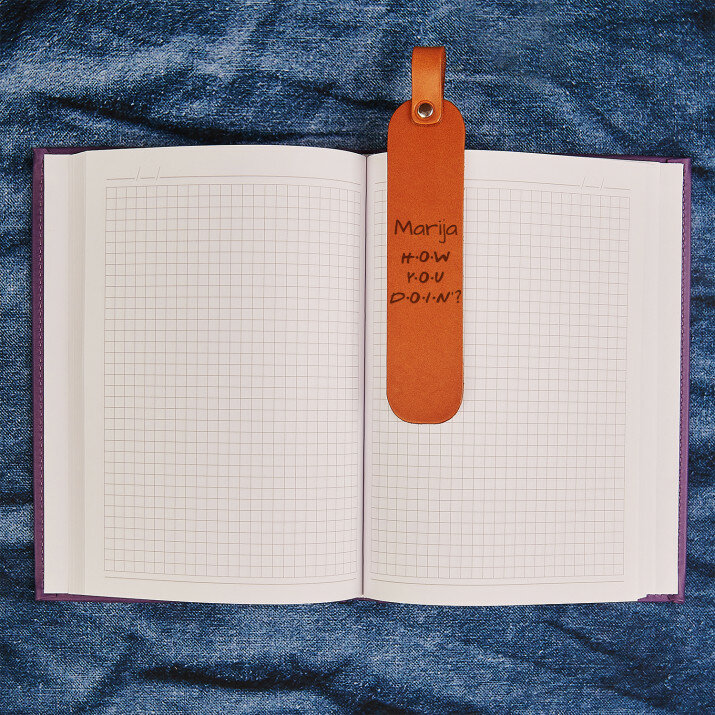 Marija
H·O·W
Y·O·U
D·O·I·N'?